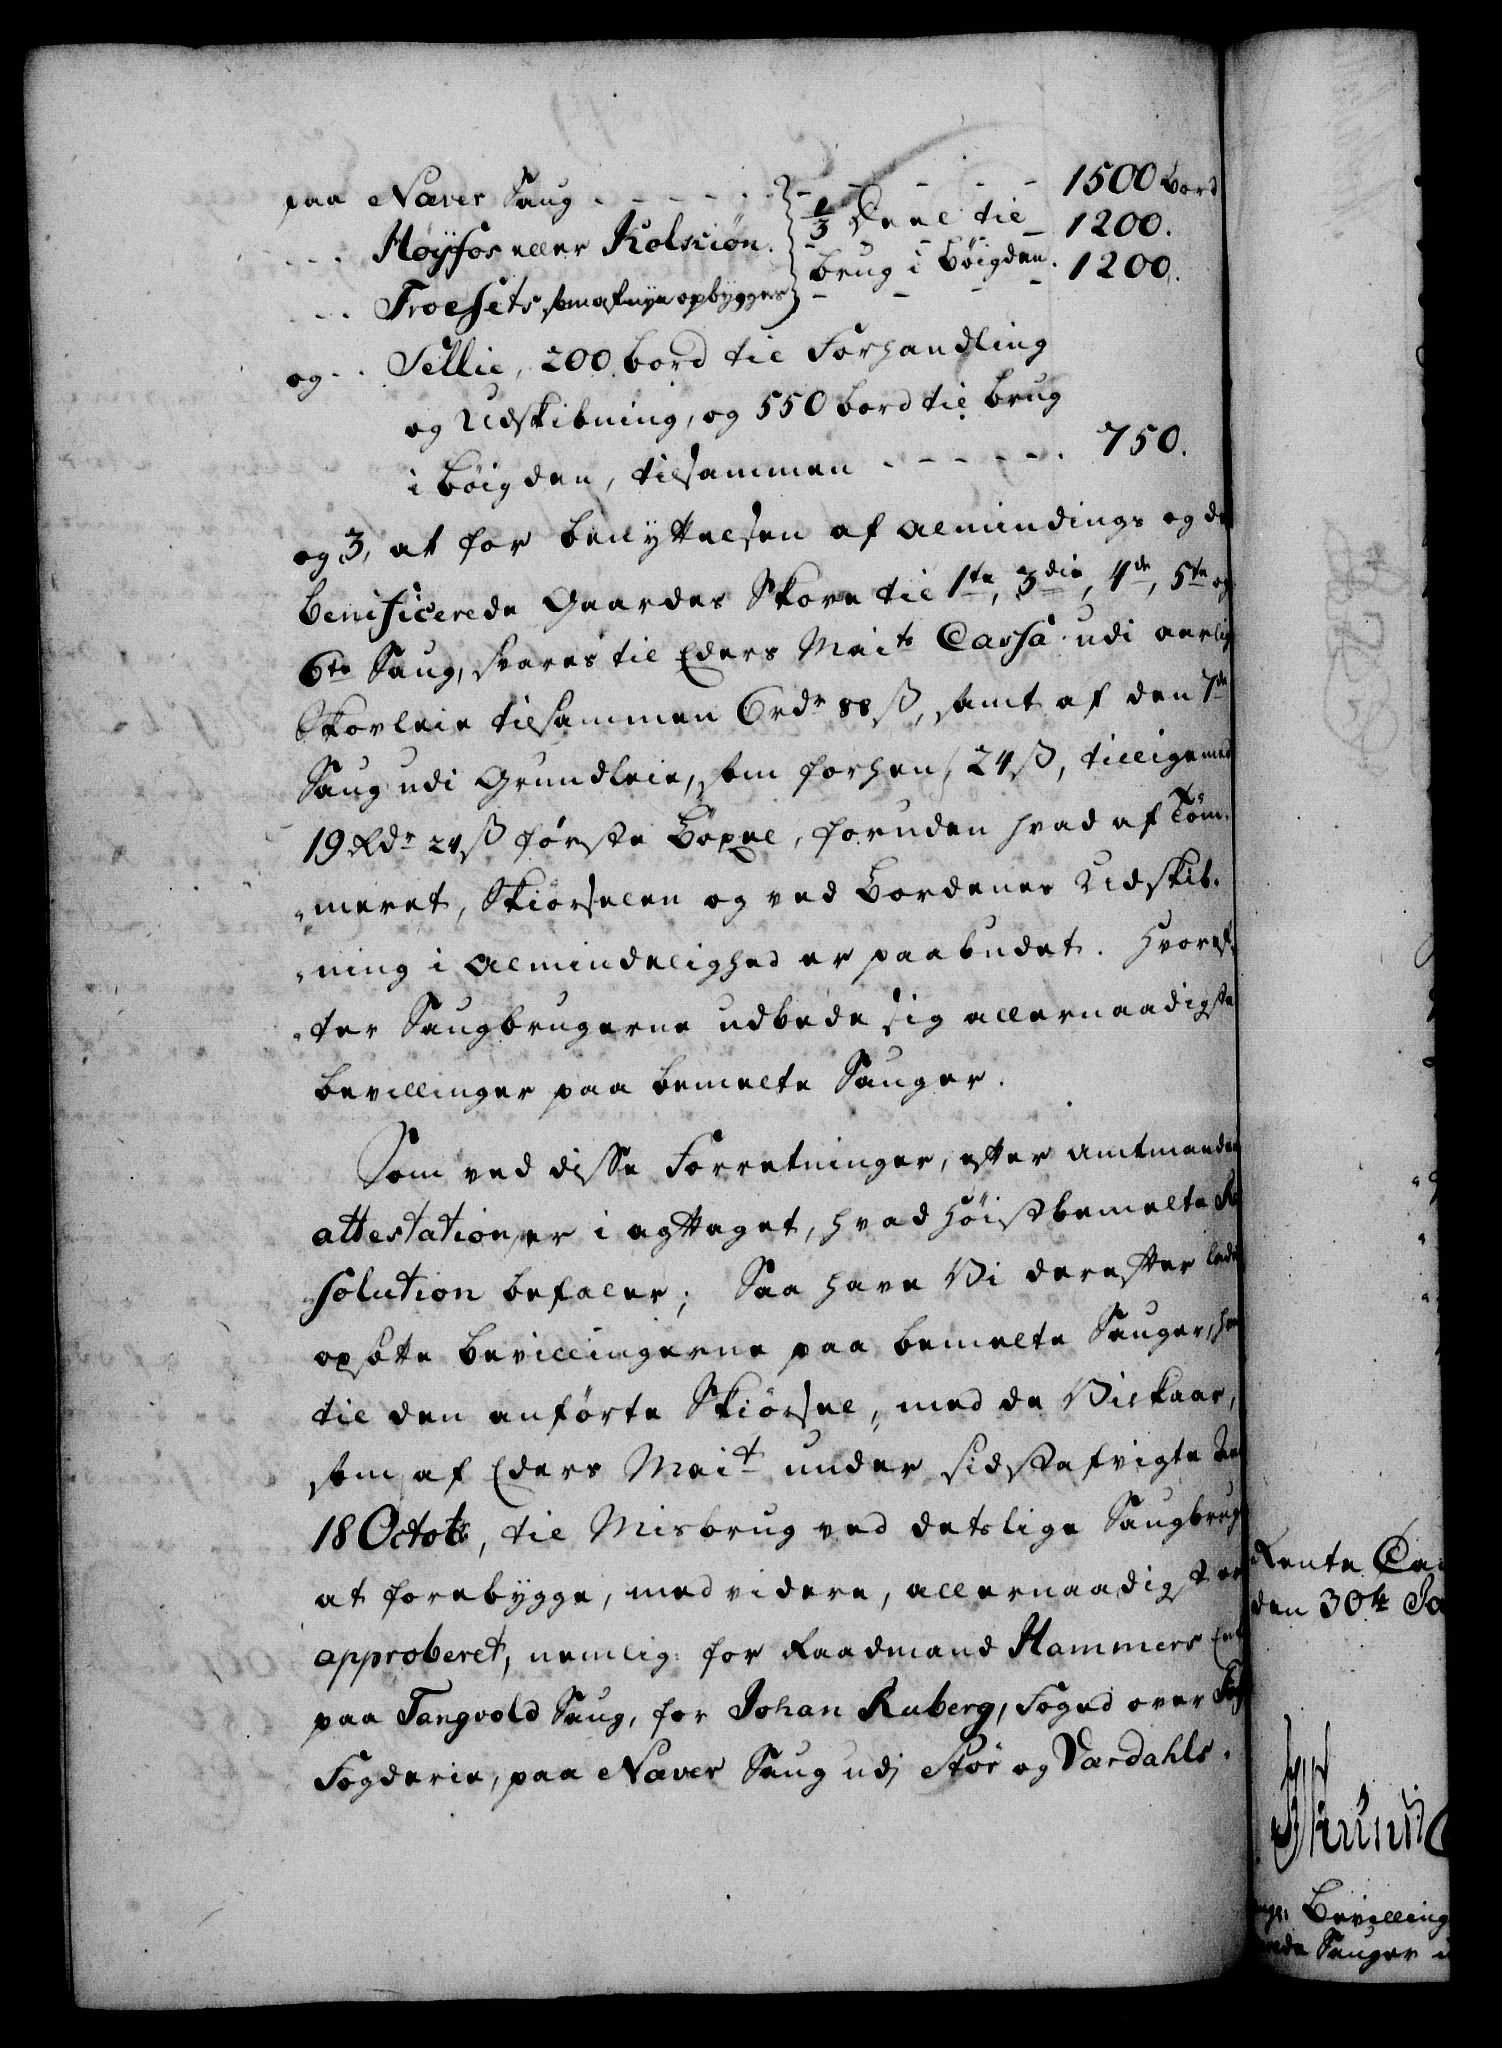 paa Næver Saug - - - - - - - - - - - 1500 bord
- - - Høyfos eller Kolsiøn. 1/3 Deel til - 1200.
- - - Troesets, som af nye opbygges brug i Bøigden. - 1200.
og - - Sellie, 200 bord til Forhandling
og Udskibning, og 550 bord til brug
i bøigden, tilsammen - - - - - - 750.
og 3, at for benyttelsen af Almindings og de
beneficerede Gaardes Skove til 1te, 3die, 4de, 5te og
6te Saug, svares til Eders Maits Cassa udi aarlig
Skovleie tilsammen 6 rdr 88 ß, samt af den 7de
Saug udi Grundleie, som forhen, 24 ß, tilligemed
19 Rdr 24 ß første Böxel, foruden hvad af Tøm-
meret, Skiørselen og ved Bordenes Udskib-
ning i Almindelighed er paabudet. Hvoref-
ter Saugbrugerne udbede sig allernaadigste
bevillinger paa bemelte Sauger.
Som ved disse Forretninger, efter Amtmandens
attestation, er i agttaget, hvad høistbemelte Re-
solution befaler; Saa have Vi derefter ladet
opsætte bevillingerne paa bemelte Sauger,
til den anførte Skiørsel, med de Vilkaar,
som af Eders Mait under sidstafvigte
18 Octobr, til Misbrug ved detslige Saugbrug
at forebygge, med videre, allernaadigst er
approberet, nemlig: for Raadmand Hammers
paa Tangvold Saug, for Johan Ruberg, Foged over
Fogderie, paa Næver Saug udj Stør og Værdahls.
Rente Ca
den 30te Ja
Bevilling
Sauger